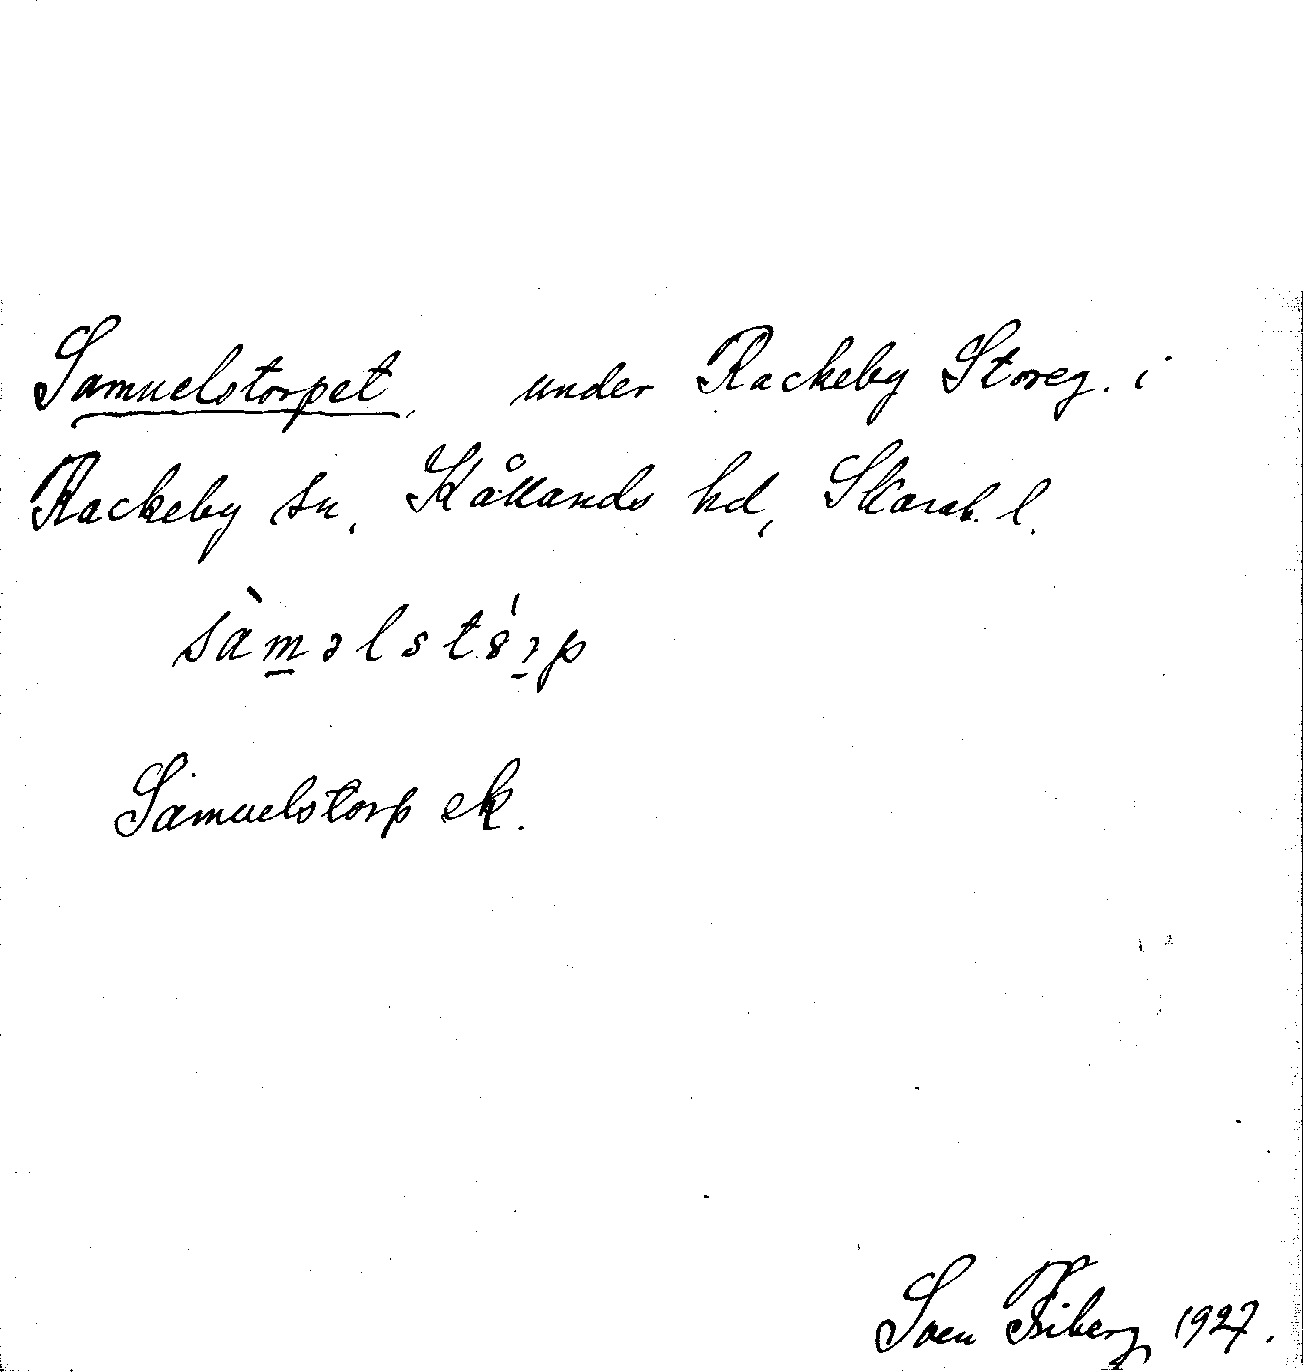 Samuelstorpet, under Rackeby Storeg. i
Rackeby sn, Kållands hd, Skarab. l.
sàməlstórp
Samuelstorp ek.
Sven Friberg 1927.